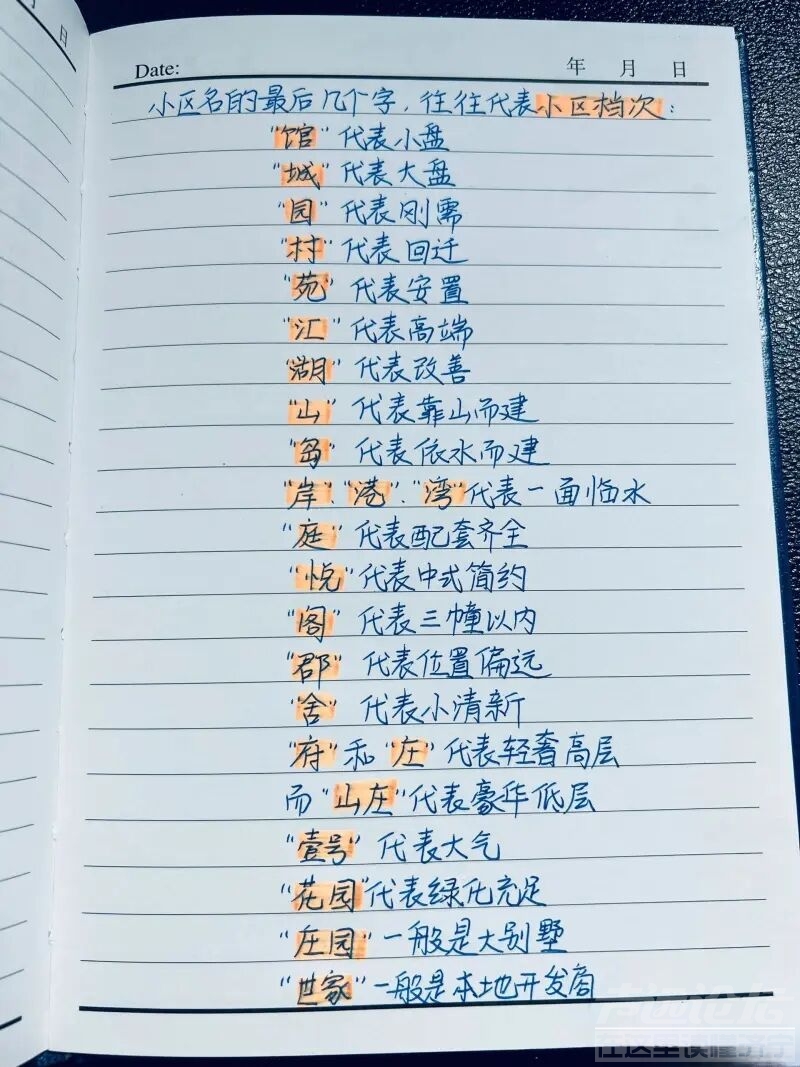 日
Date: 年 月 日
小区名的最后几个字，往往代表小区档次：
"馆"代表小盘
"城"代表大盘
"园"代表刚需
"村"代表回迁
"苑"代表安置
"汇"代表高端
"湖"代表改善
"山"代表靠山而建
"岛"代表依水而建
"岸"、"港"、"湾"代表一面临水
"庭"代表配套齐全
"悦"代表中式简约
"阁"代表三幢以内
"郡"代表位置偏远
"舍"代表小清新
"府"和"庄"代表轻奢高层
而"山庄"代表豪华低层
"壹号"代表大气
"花园"代表绿化充足
"庄园"一般是大别墅
"世家"一般是本地开发商